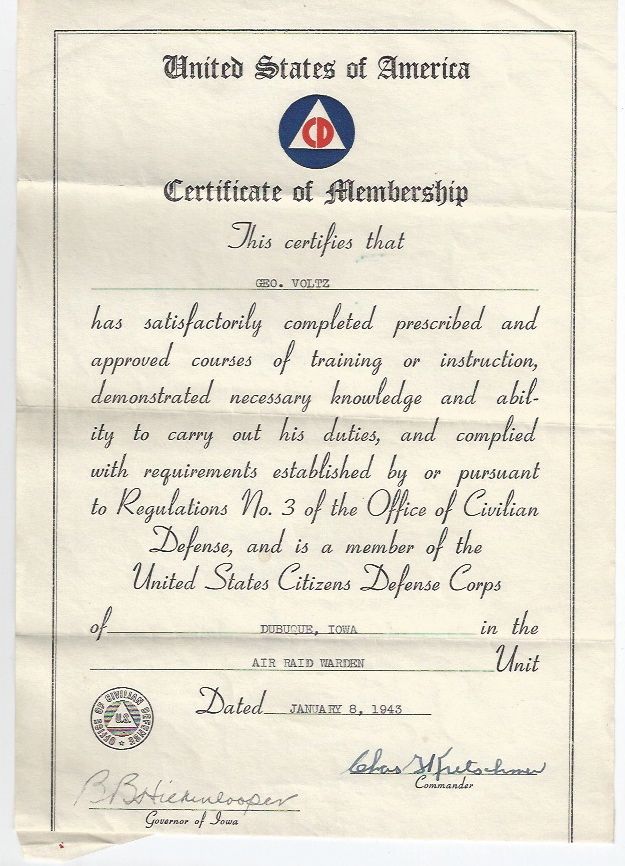 United States of America
CD
Certificate of Membership
This certifies that
GEO. VOLTZ
has satisfactorily completed prescribed and
approved courses of training or instruction,
demonstrated necessary knowledge and abil-
ity to carry out his duties, and complied
with requirements established by or pursuant
to Regulations No. 3 of the Office of Civilian
Defense, and is a member of the
United States Citizens Defense Corps
of DUBUQUE, IOWA in the
AIR RAID WARDEN Unit
Dated JANUARY 8, 1943
OFFICE OF CIVILIAN DEFENSE
U.S.
Chas Kretschmer
Commander
B B Hickenlooper
Governor of Iowa